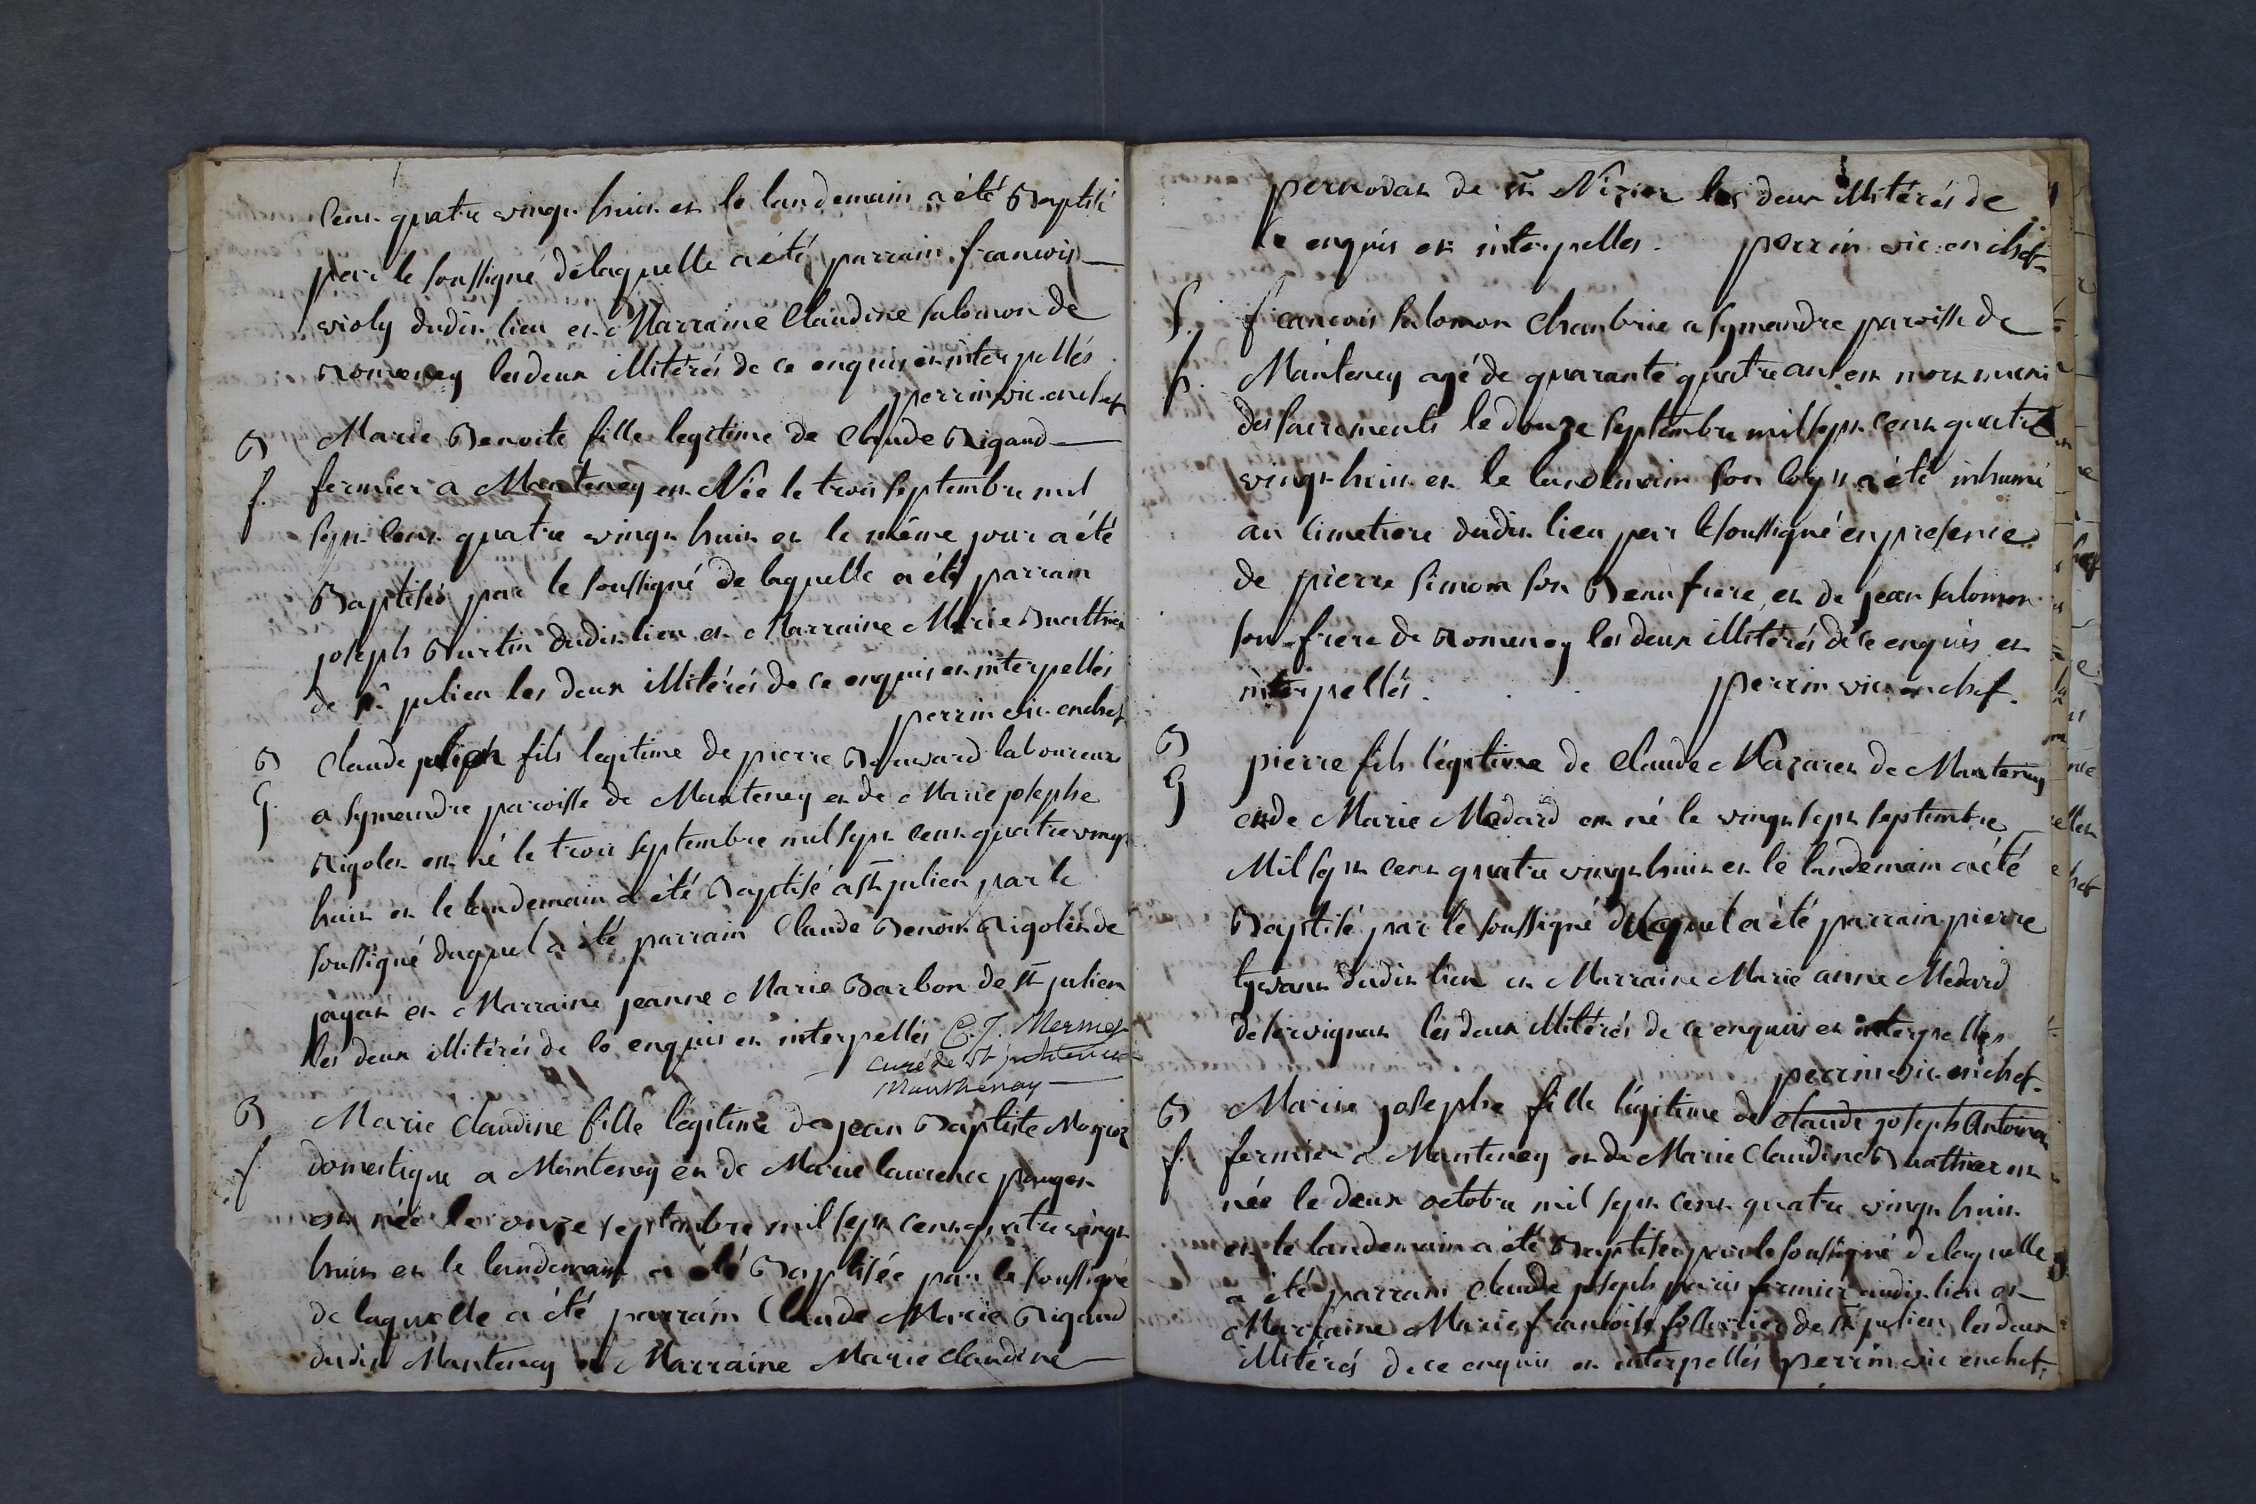 Cent quatre vingt huit et le landemain a été Baptisé
par le soussigné de laquelle a été parrain francois
violy dudit lieu et Marraine Claudine salomon de
Romenay les deux illitérés de ce enquis et interpellés
perrin vic. en chef
B Marie Benoite fille legitime de Claude Rigaud
f. fermier a Manteney est Née le trois septembre mil
sept Cent quatre vingt huit et le même jour a été
Baptisée par le soussigné de laquelle a été parrain
joseph Burtin dudit lieu et Marraine Marie Buathier
de st julien les deux illitérés de ce enquis et interpellés
perrin vic. en chef
B Claude joseph fils legitime de pierre Bouvard laboureur
G. a symandre paroisse de Manteney et de Marie josephe
Rigolet est né le trois septembre mil sept cent quatre vingt
huit et le landemain a été Baptisé a st julien par le
soussigné duquel a été parrain Claude Benoit Rigolet de
jayat et Marraine jeanne Marie Barbon de st julien
les deux illitérés de ce enquis et interpellés C. J. Mermet
curé de st julien et
Manthenay
B Marie Claudine fille légitime de jean Baptiste
f domestique a Manteney et de Marie laurence pauget
est née le onze septembre mil sept cent quatre vingt
huit et le landemain a été Baptisée par le soussigné
de laquelle a été parrain Claude Marie Rigaud
dudit Manteney et Marraine Marie Claudine
pernodat de st Nizier les deux illitérés de
ce enquis et interpellés. perrin vic. en chef
S. francois salomon Chambrie a symandre paroisse de
h. Manteney agé de quarante quatre ans est mort muni
des sacrements le douze septembre mil sept cent quatre
vingt huit et le landemain son corps a été inhumé
au cimetiere dudit lieu par le soussigné en presence
de pierre simon son Beau frere et de jean salomon
son frere de Romenay les deux illitérés de ce enquis et
interpellés. perrin vic en chef.
B pierre fils légitime de Claude Nazaret de Manteney
G et de Marie Medard est né le vingt sept septembre
Mil sept cent quatre vingt huit et le landemain a été
Baptisé par le soussigné duquel a été parrain pierre
dudit lieu et Marraine Marie anne Medard
de servignat les deux illitérés de ce enquis et interpellés
perrin vic. en chef.
B Marie josephe fille légitime de claude joseph Antoinet
f. fermier a Manteney et de Marie Claudine Buathier est
née le deux octobre mil sept cent quatre vingt huit
et le landemain a été Baptisée par le soussigné de laquelle
a été parrain claude joseph paris fermier audit lieu et
Marraine Marie francoise de st julien les deux
illitérés de ce enquis et interpellés perrin vic en chef.